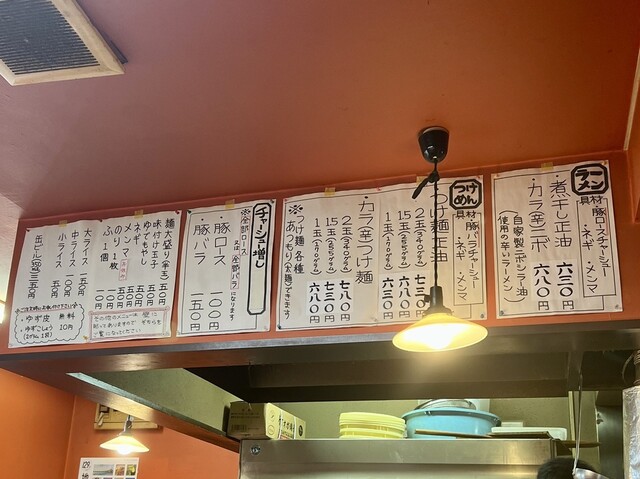 ラーメン
具材・豚ロースチャーシュー
・ネギ・メンマ
・煮干し正油 六三〇円
・カラ辛ニボ 六八〇円
自家製ニボシラー油
使用の辛いラーメン
つけめん
具材・豚バラチャーシュー
・ネギ・メンマ
つけ麺正油
2玉(340グラム) 七三〇円
15玉(255グラム) 六八〇円
1玉(170グラム) 六三〇円
・カラ辛つけ麺
2玉(340グラム) 七八〇円
15玉(255グラム) 七三〇円
1玉(170グラム) 六八〇円
※つけ麺各種
あつもり(太麺)できます。
チャーシュー増し
※全部ロース
又は全部バラになります
・豚ロース 一〇〇円
・豚バラ 一五〇円
麺大盛り(半玉) 五〇円
味付け玉子
ゆでもやし
ネギ
メンマ
のり1枚
ふ1個
大ライス 一五〇円
中ライス 一〇〇円
小ライス 五〇円
缶ビール 三五〇円
・ゆず皮 無料
・ゆずこしょう 10円
その他のメニューは壁に
貼ってありますのでそちらを
ご覧になってください